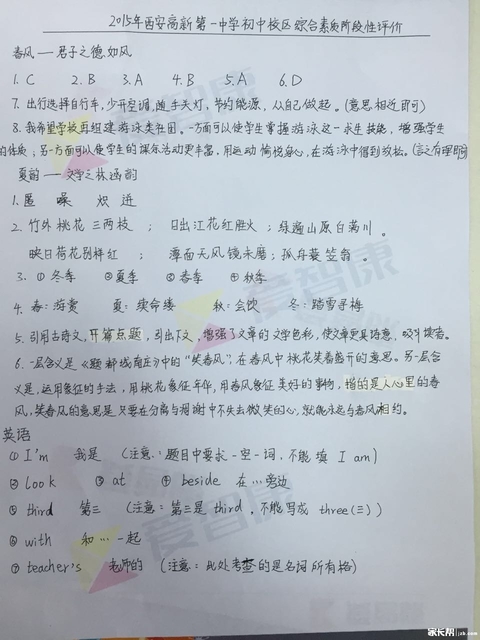 2015年西安高新第一中学初中校区综合素质阶段性评价
春风——君子之德如风
1. C 2. B 3. A 4. B 5. A 6. D
7. 出行选择自行车,少开空调,随手关灯,节约能源,从自己做起。(意思相近即可)
8. 我希望学校再组建游泳类社团。一方面可以使学生掌握游泳这一求生技能,增强学生
的体质;另一方面可以使学生的课余活动更丰富,用运动愉悦身心,在游泳中得到放松。(言之有理即可)
夏韵——文学之林涵韵
1. 匿 噪 炽 进
2. 竹外桃花三两枝 ; 日出江花红胜火 ; 绿遍山原白满川 。
映日荷花别样红 ; 潭面无风镜未磨 ; 孤舟蓑笠翁 。
3. ①冬季 ②夏季 ③春季 ④秋季
4. 春:游赏 夏:续命缕 秋:会饮 冬:踏雪寻梅
5. 引用古诗文,开篇点题,引出下文,增强了文章的文学色彩,使文章更具诗意,吸引读者。
6. 一层含义是《题都城南庄》中的“笑春风”,在春风中桃花笑着盛开的意思。另一层含
义是,运用象征的手法,用桃花象征年华,用春风象征美好的事物,指的是人心里的春
风,笑春风的意思是只要在分离与凋谢中不失去微笑的心,就能永远与春风相约。
英语
① I'm 我是 (注意:题目中要求一空一词,不能填 I am)
② look ③ at ④ beside 在…旁边
⑤ third 第三 (注意:第三是 third,不能写成 three(三))
⑥ with 和…一起
⑦ teacher's 老师的 (注意:此处考查的是名词所有格)
爱智康
家长帮 jzb.com